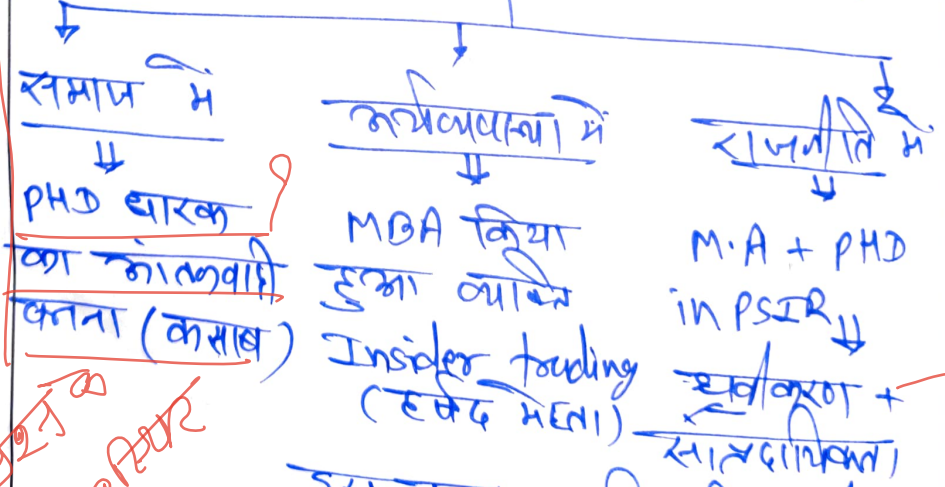 समाज में
PHD धारक
का आंतकवादी
बनना (कसाब)
अर्थव्यवस्था में
MBA किया
हुआ व्यक्ति
Insider trading
(हर्षद मेहता)
राजनीति में
M.A + PHD
in PSIR
ध्रुवीकरण +
सांप्रदायिकता